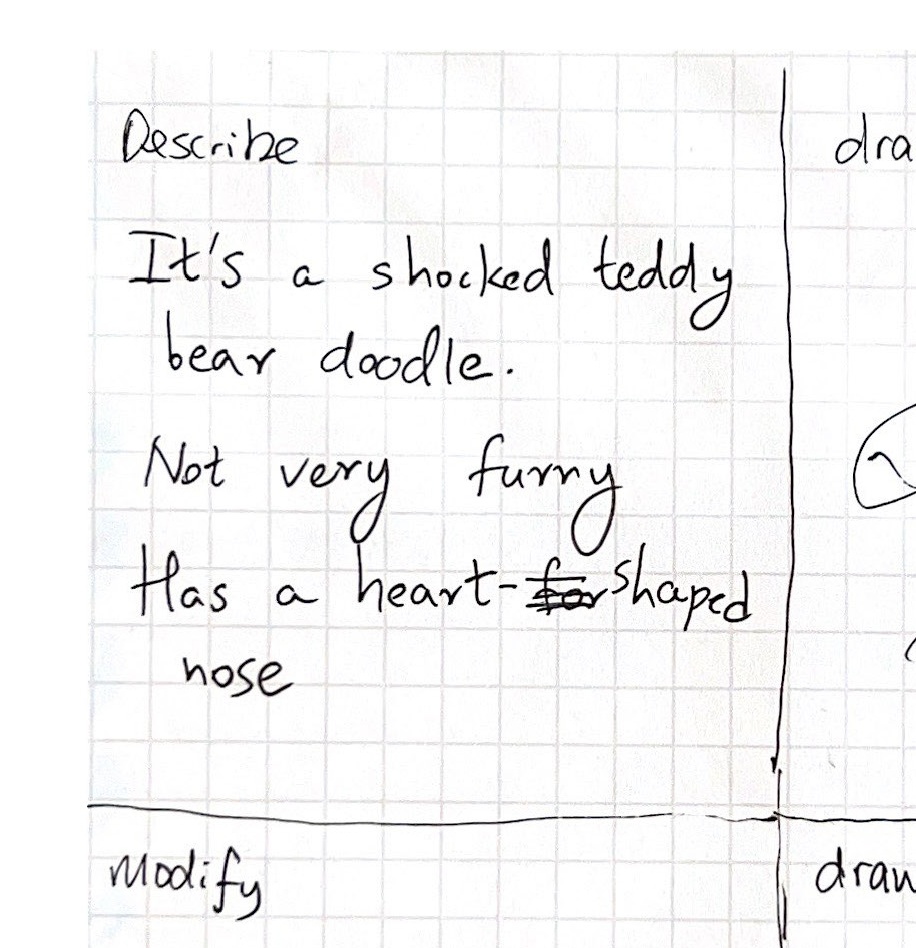 Describe
It's a shocked teddy
bear doodle.
Not very furry
Has a heart-shaped
nose
Modify